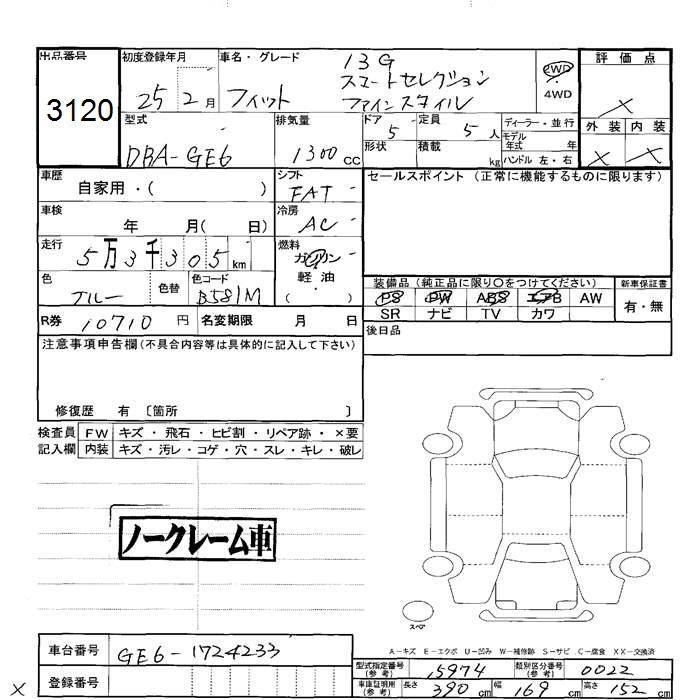 出品番号 初度登録年月 車名・グレード 13G 評価点
3120 25 2月 フィット スマートセレクション ファインスタイル 2WD ・ 4WD ×
型式 排気量 ドア 5 定員 5人 ディーラー・並行 外装 内装
DBA-GE6 1300cc 形状 積載 kg モデル年式 年 × ×
ハンドル 左・右
車歴 自家用・( ) シフト FAT セールスポイント (正常に機能するものに限ります)
車検 年 月( 日) 冷房 AC
走行 5万3千305km 燃料 ガソリン
軽・油
( )
色 ブルー 色替 色コード B581M 装備品 (純正品に限り○をつけてください) 新車保証書
PS PW ABS エアB AW 有・無
SR ナビ TV カワ
R券 10710円 名変期限 月 日 後日品
注意事項申告欄(不具合内容等は具体的に記入して下さい)
修復歴 有 〔箇所 〕
検査員 FW キズ・飛石・ヒビ割・リペア跡・×要
記入欄 内装 キズ・汚レ・コゲ・穴・スレ・キレ・破レ
ノークレーム車
スペア
A-キズ E-エクボ U-凹み W-補修跡 S-サビ C-腐食 XX-交換済
車台番号 GE6-1724233 型式指定番号(参考) 15974 類別区分番号(参考) 0022
登録番号 車庫証明用(参考) 長さ 390cm 幅 169cm 高さ 152cm
×